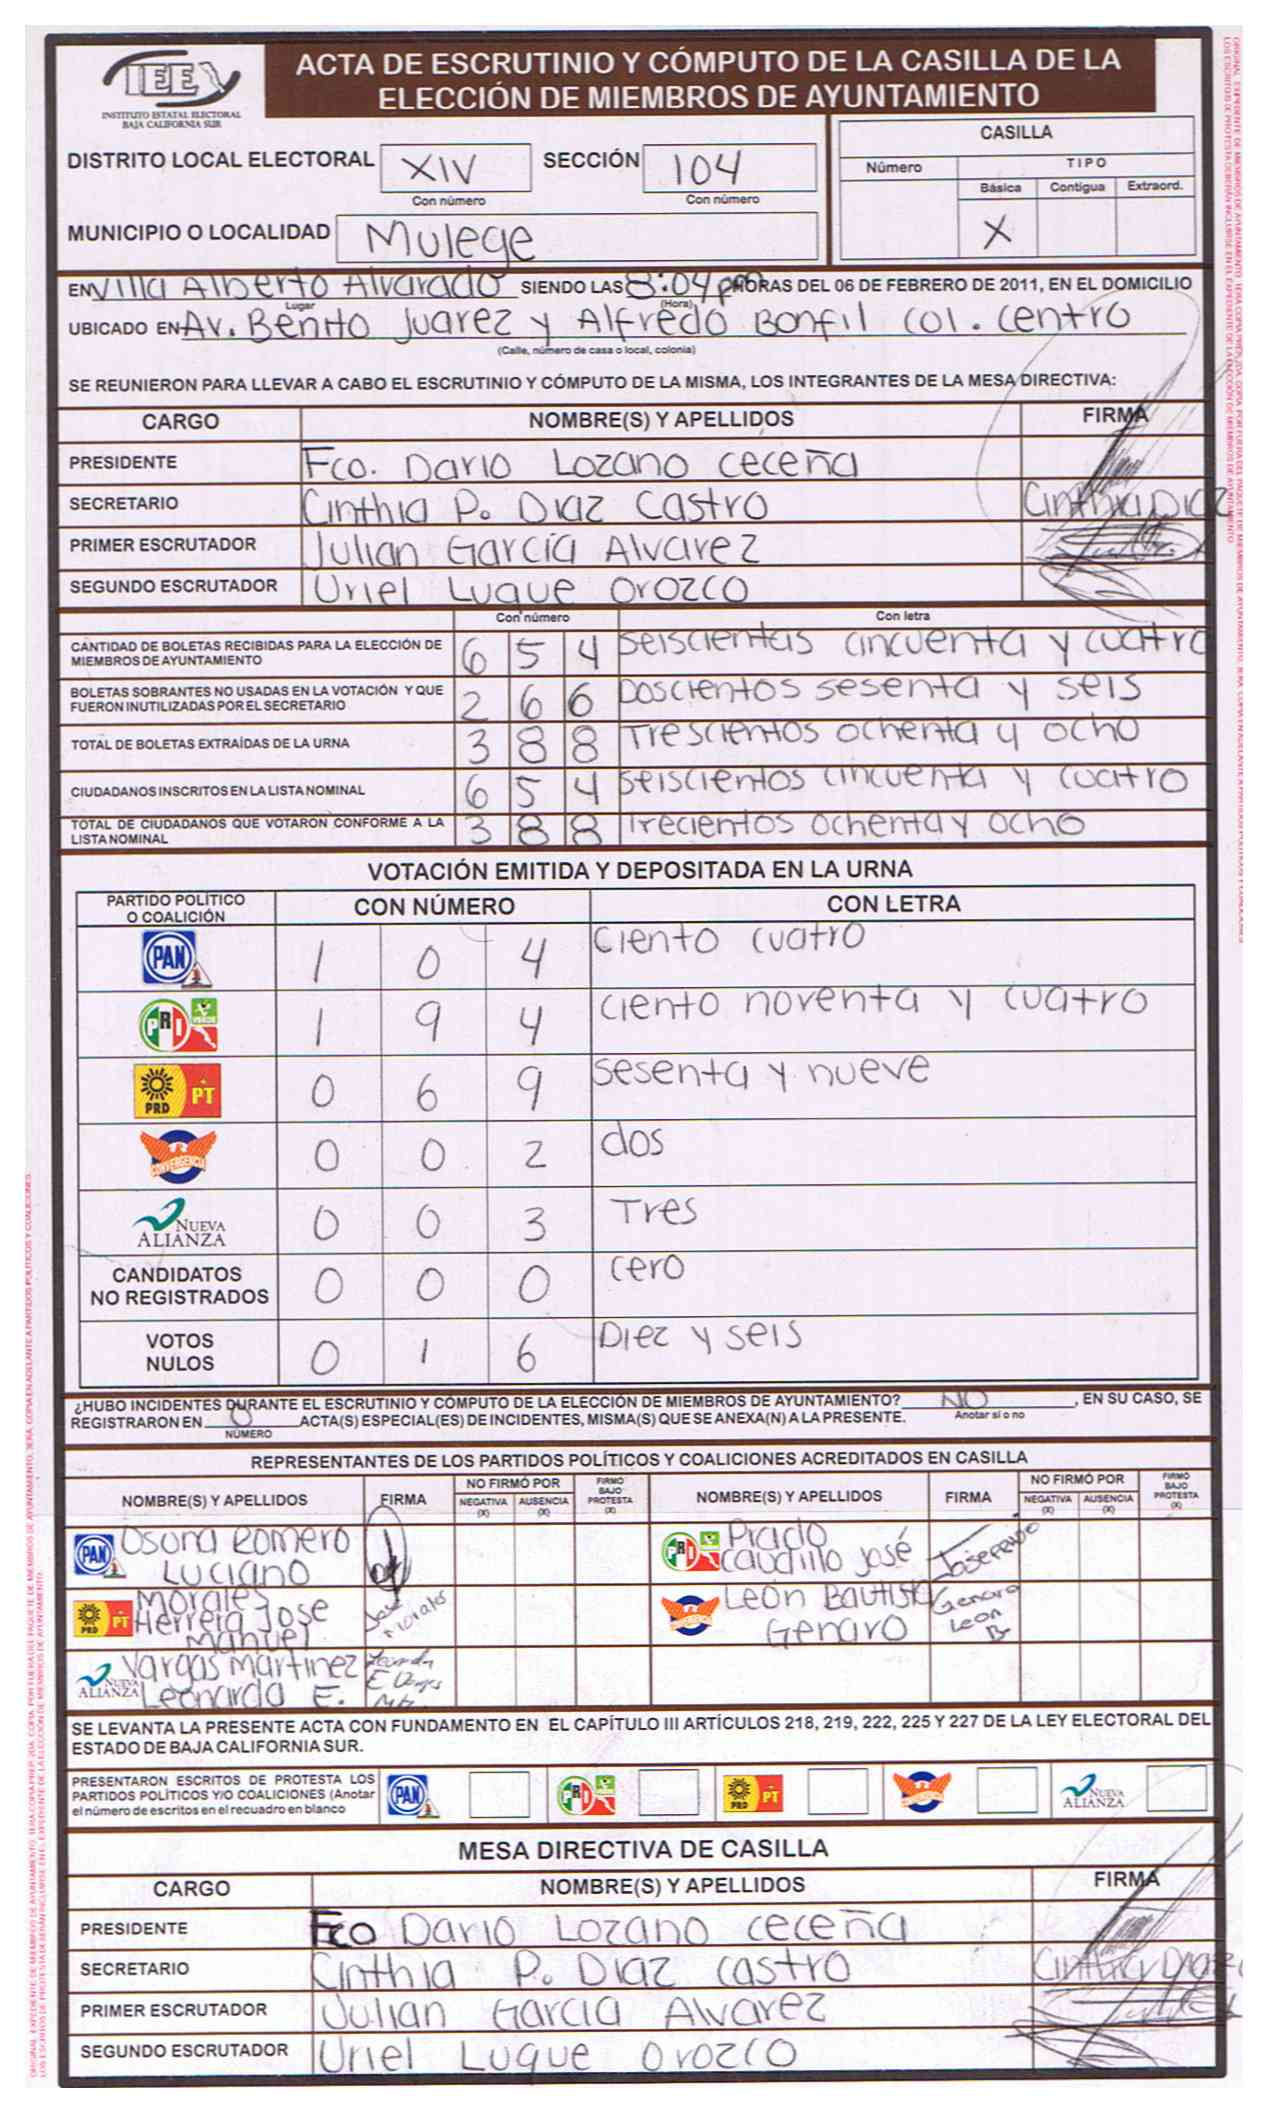 IEE
INSTITUTO ESTATAL ELECTORAL
BAJA CALIFORNIA SUR
ACTA DE ESCRUTINIO Y CÓMPUTO DE LA CASILLA DE LA
ELECCIÓN DE MIEMBROS DE AYUNTAMIENTO
DISTRITO LOCAL ELECTORAL XIV SECCIÓN 104
Con número Con número
MUNICIPIO O LOCALIDAD Mulege
CASILLA
Número TIPO
Básica Contigua Extraord.
X
EN Villa Alberto Alvarado SIENDO LAS 8:04 pm HORAS DEL 06 DE FEBRERO DE 2011, EN EL DOMICILIO
Lugar (Hora)
UBICADO EN Av. Benito Juarez y Alfredo Bonfil col. centro
(Calle, número de casa o local, colonia)
SE REUNIERON PARA LLEVAR A CABO EL ESCRUTINIO Y CÓMPUTO DE LA MISMA, LOS INTEGRANTES DE LA MESA DIRECTIVA:
CARGO NOMBRE(S) Y APELLIDOS FIRMA
PRESIDENTE Fco. Dario Lozano ceceña
SECRETARIO Cinthia P. Diaz Castro Cinthia Diaz
PRIMER ESCRUTADOR Julian García Alvarez
SEGUNDO ESCRUTADOR Uriel Luque Orozco
Con número Con letra
CANTIDAD DE BOLETAS RECIBIDAS PARA LA ELECCIÓN DE
MIEMBROS DE AYUNTAMIENTO 6 5 4 seiscientas cincuenta y cuatro
BOLETAS SOBRANTES NO USADAS EN LA VOTACIÓN Y QUE
FUERON INUTILIZADAS POR EL SECRETARIO 2 6 6 Doscientos sesenta y seis
TOTAL DE BOLETAS EXTRAÍDAS DE LA URNA 3 8 8 Trescientos ochenta y ocho
CIUDADANOS INSCRITOS EN LA LISTA NOMINAL 6 5 4 seiscientos cincuenta y cuatro
TOTAL DE CIUDADANOS QUE VOTARON CONFORME A LA
LISTA NOMINAL 3 8 8 Trecientos ochenta y ocho
VOTACIÓN EMITIDA Y DEPOSITADA EN LA URNA
PARTIDO POLÍTICO
O COALICIÓN CON NÚMERO CON LETRA
PAN 1 0 4 ciento cuatro
PRI VERDE 1 9 4 ciento noventa y cuatro
PRD PT 0 6 9 sesenta y nueve
CONVERGENCIA 0 0 2 dos
NUEVA
ALIANZA 0 0 3 Tres
CANDIDATOS
NO REGISTRADOS 0 0 0 cero
VOTOS
NULOS 0 1 6 Diez y seis
¿HUBO INCIDENTES DURANTE EL ESCRUTINIO Y CÓMPUTO DE LA ELECCIÓN DE MIEMBROS DE AYUNTAMIENTO? NO , EN SU CASO, SE
REGISTRARON EN 0 ACTA(S) ESPECIAL(ES) DE INCIDENTES, MISMA(S) QUE SE ANEXA(N) A LA PRESENTE. Anotar sí o no
NÚMERO
REPRESENTANTES DE LOS PARTIDOS POLÍTICOS Y COALICIONES ACREDITADOS EN CASILLA
NOMBRE(S) Y APELLIDOS FIRMA NO FIRMÓ POR NEGATIVA (X) AUSENCIA (X) FIRMÓ BAJO PROTESTA (X) NOMBRE(S) Y APELLIDOS FIRMA NO FIRMÓ POR NEGATIVA (X) AUSENCIA (X) FIRMÓ BAJO PROTESTA (X)
PAN Osuna Romero
Luciano
PRI Prado
Caudillo José
PRD PT Morales
Herrera Jose
Manuel Jose Morales
CONVERGENCIA León Bautista
Genaro Genaro
Leon
B
NUEVA
ALIANZA Vargas Martinez
Leonarda E.
SE LEVANTA LA PRESENTE ACTA CON FUNDAMENTO EN EL CAPÍTULO III ARTÍCULOS 218, 219, 222, 225 Y 227 DE LA LEY ELECTORAL DEL
ESTADO DE BAJA CALIFORNIA SUR.
PRESENTARON ESCRITOS DE PROTESTA LOS
PARTIDOS POLÍTICOS Y/O COALICIONES (Anotar
el número de escritos en el recuadro en blanco
PAN PRI PRD PT CONVERGENCIA NUEVA ALIANZA
MESA DIRECTIVA DE CASILLA
CARGO NOMBRE(S) Y APELLIDOS FIRMA
PRESIDENTE Fco Dario Lozano ceceña
SECRETARIO Cinthia P. Diaz castro Cinthia Diaz
PRIMER ESCRUTADOR Julian García Alvarez
SEGUNDO ESCRUTADOR Uriel Luque Orozco